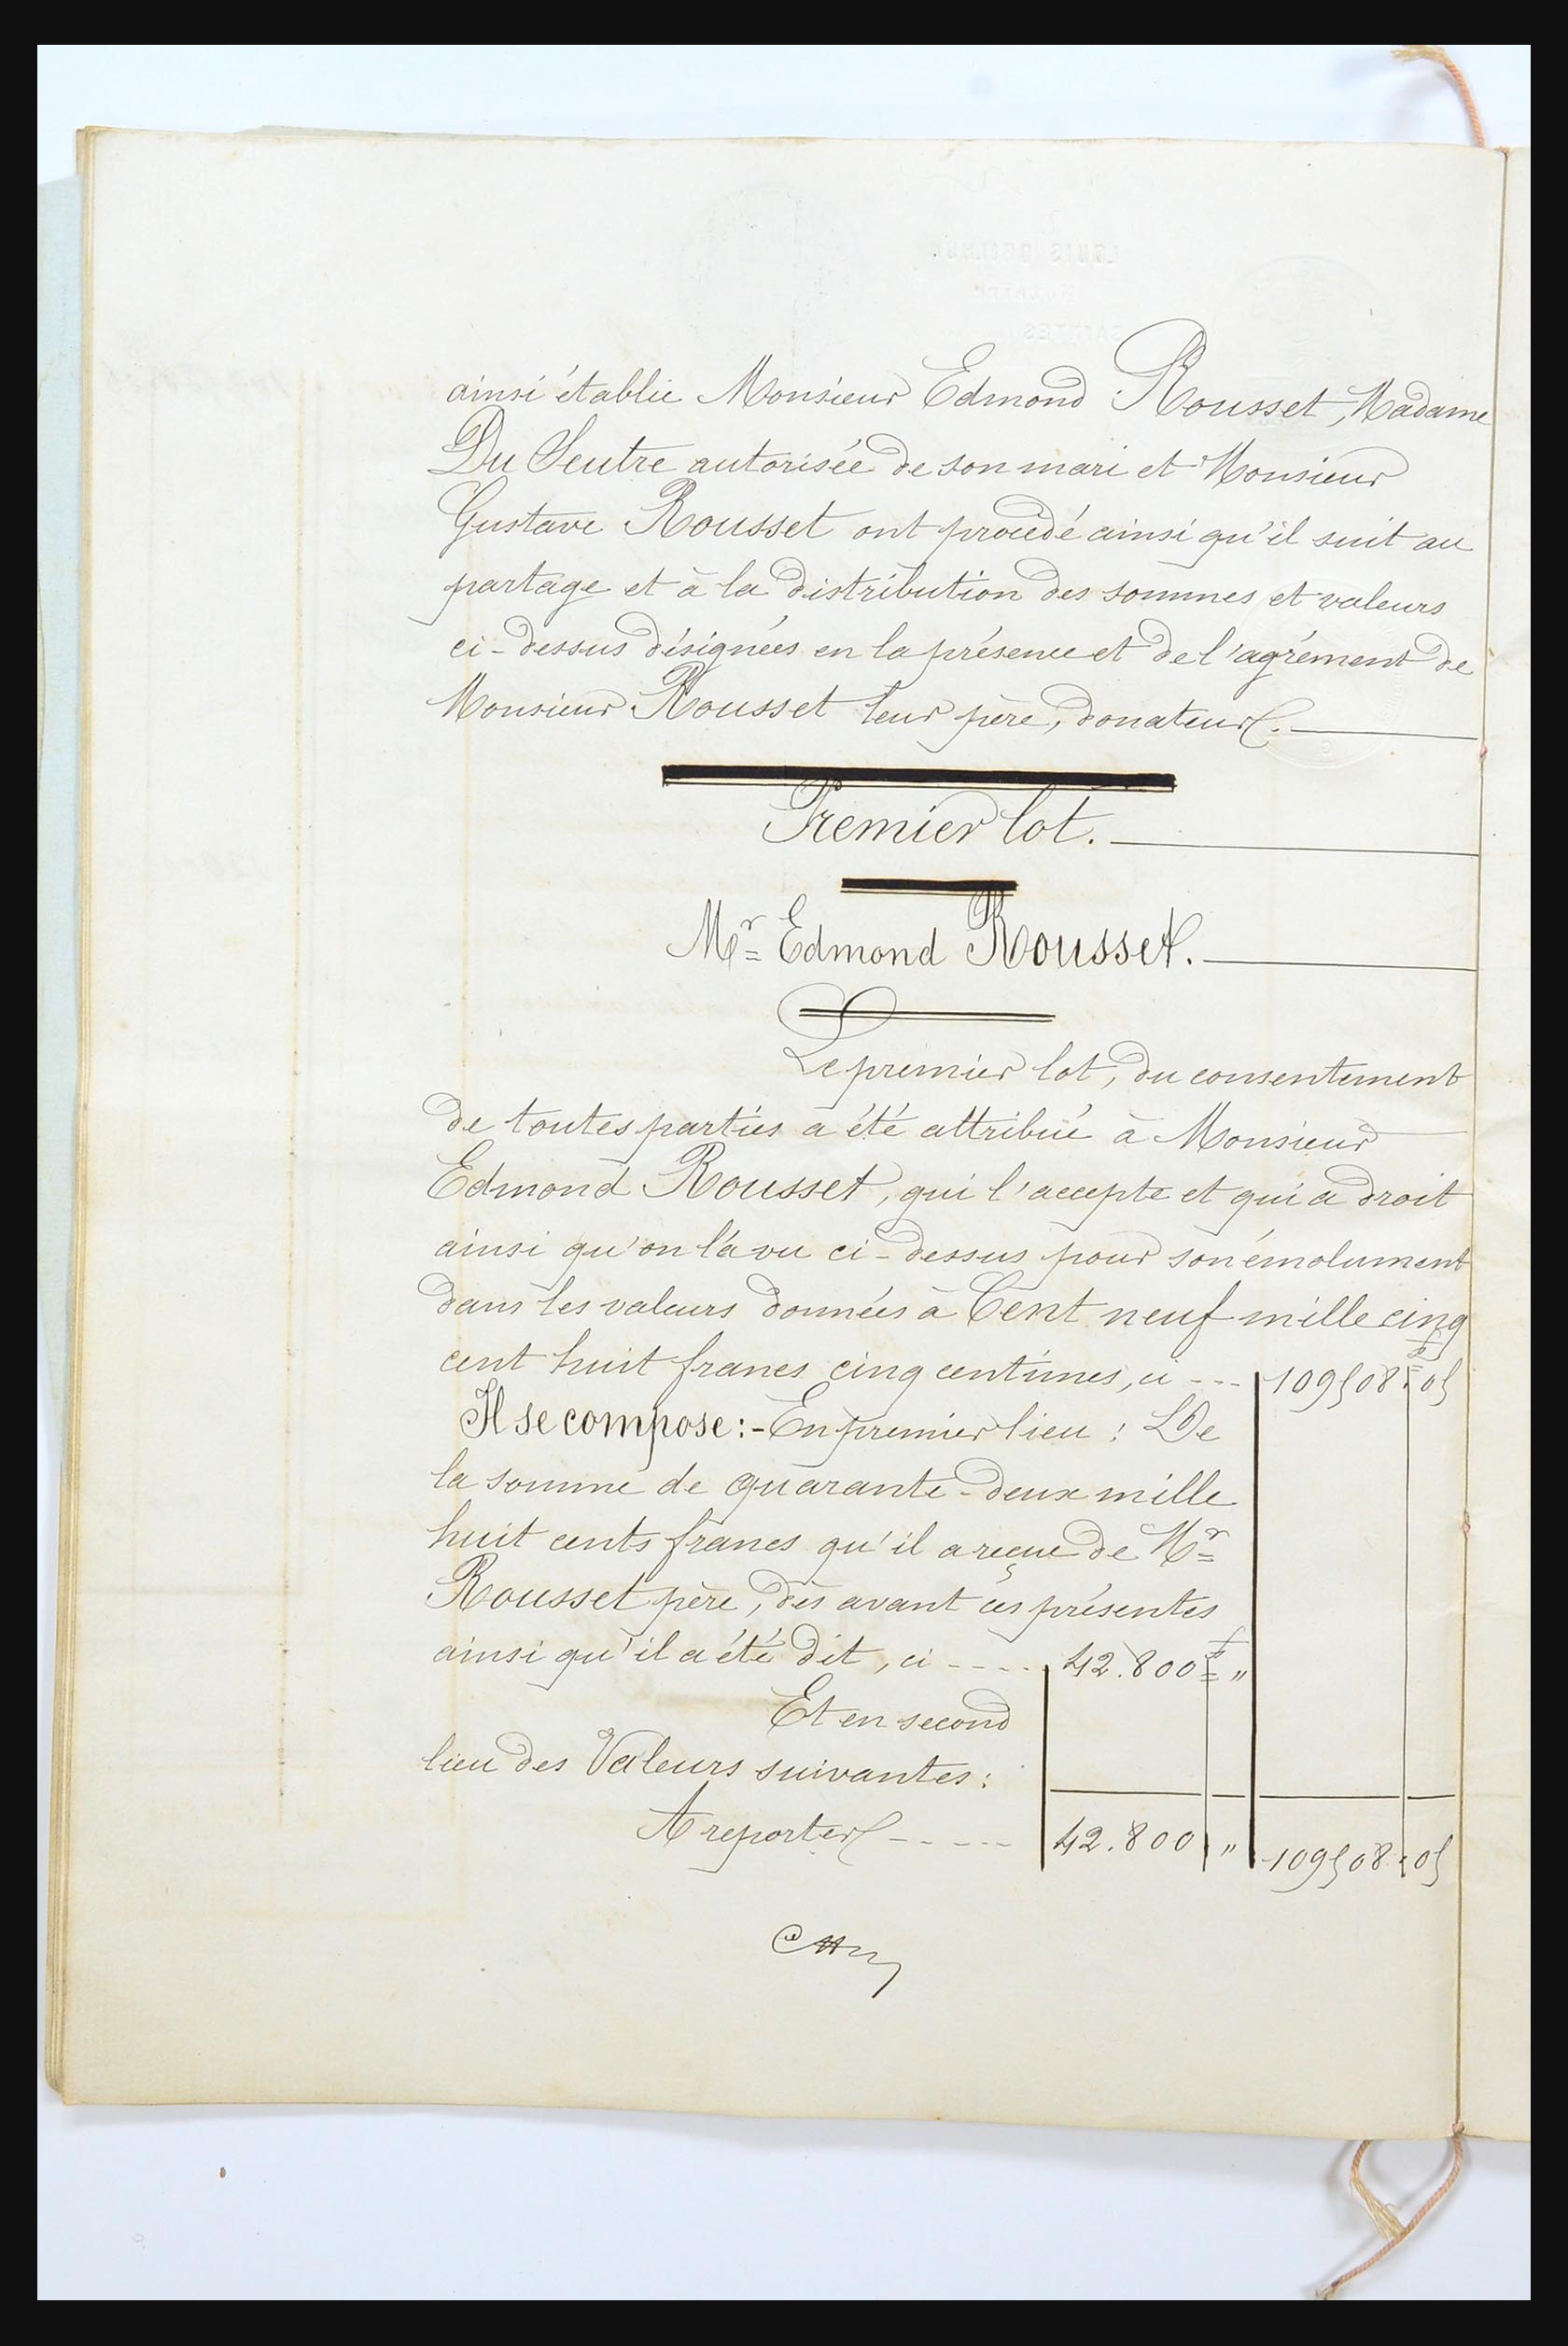 ainsi établie Monsieur Edmond Rousset, Madame
Du Seutre autorisée de son mari et Monsieur
Gustave Rousset ont procédé ainsi qu'il suit au
partage et à la distribution des sommes et valeurs
ci-dessus désignées en la présence et de l'agrément de
Monsieur Rousset leur père, donateur.
Premier lot.
Mr Edmond Rousset.
Le premier lot, du consentement
de toutes parties a été attribué à Monsieur
Edmond Rousset, qui l'accepte et qui a droit
ainsi qu'on l'a vu ci-dessus pour son émolument
dans les valeurs données à Cent neuf mille cinq
cent huit francs cinq centimes, ci --- 109508f 05
Il se compose:- En premier lieu : De
la somme de quarante-deux mille
huit cents francs qu'il a reçue de Mr
Rousset père, dès avant ces présentes
ainsi qu'il a été dit, ci ---- 42.800f "
Et en second
lieu des Valeurs suivantes:
A reporter ----- 42.800 " 109508.05